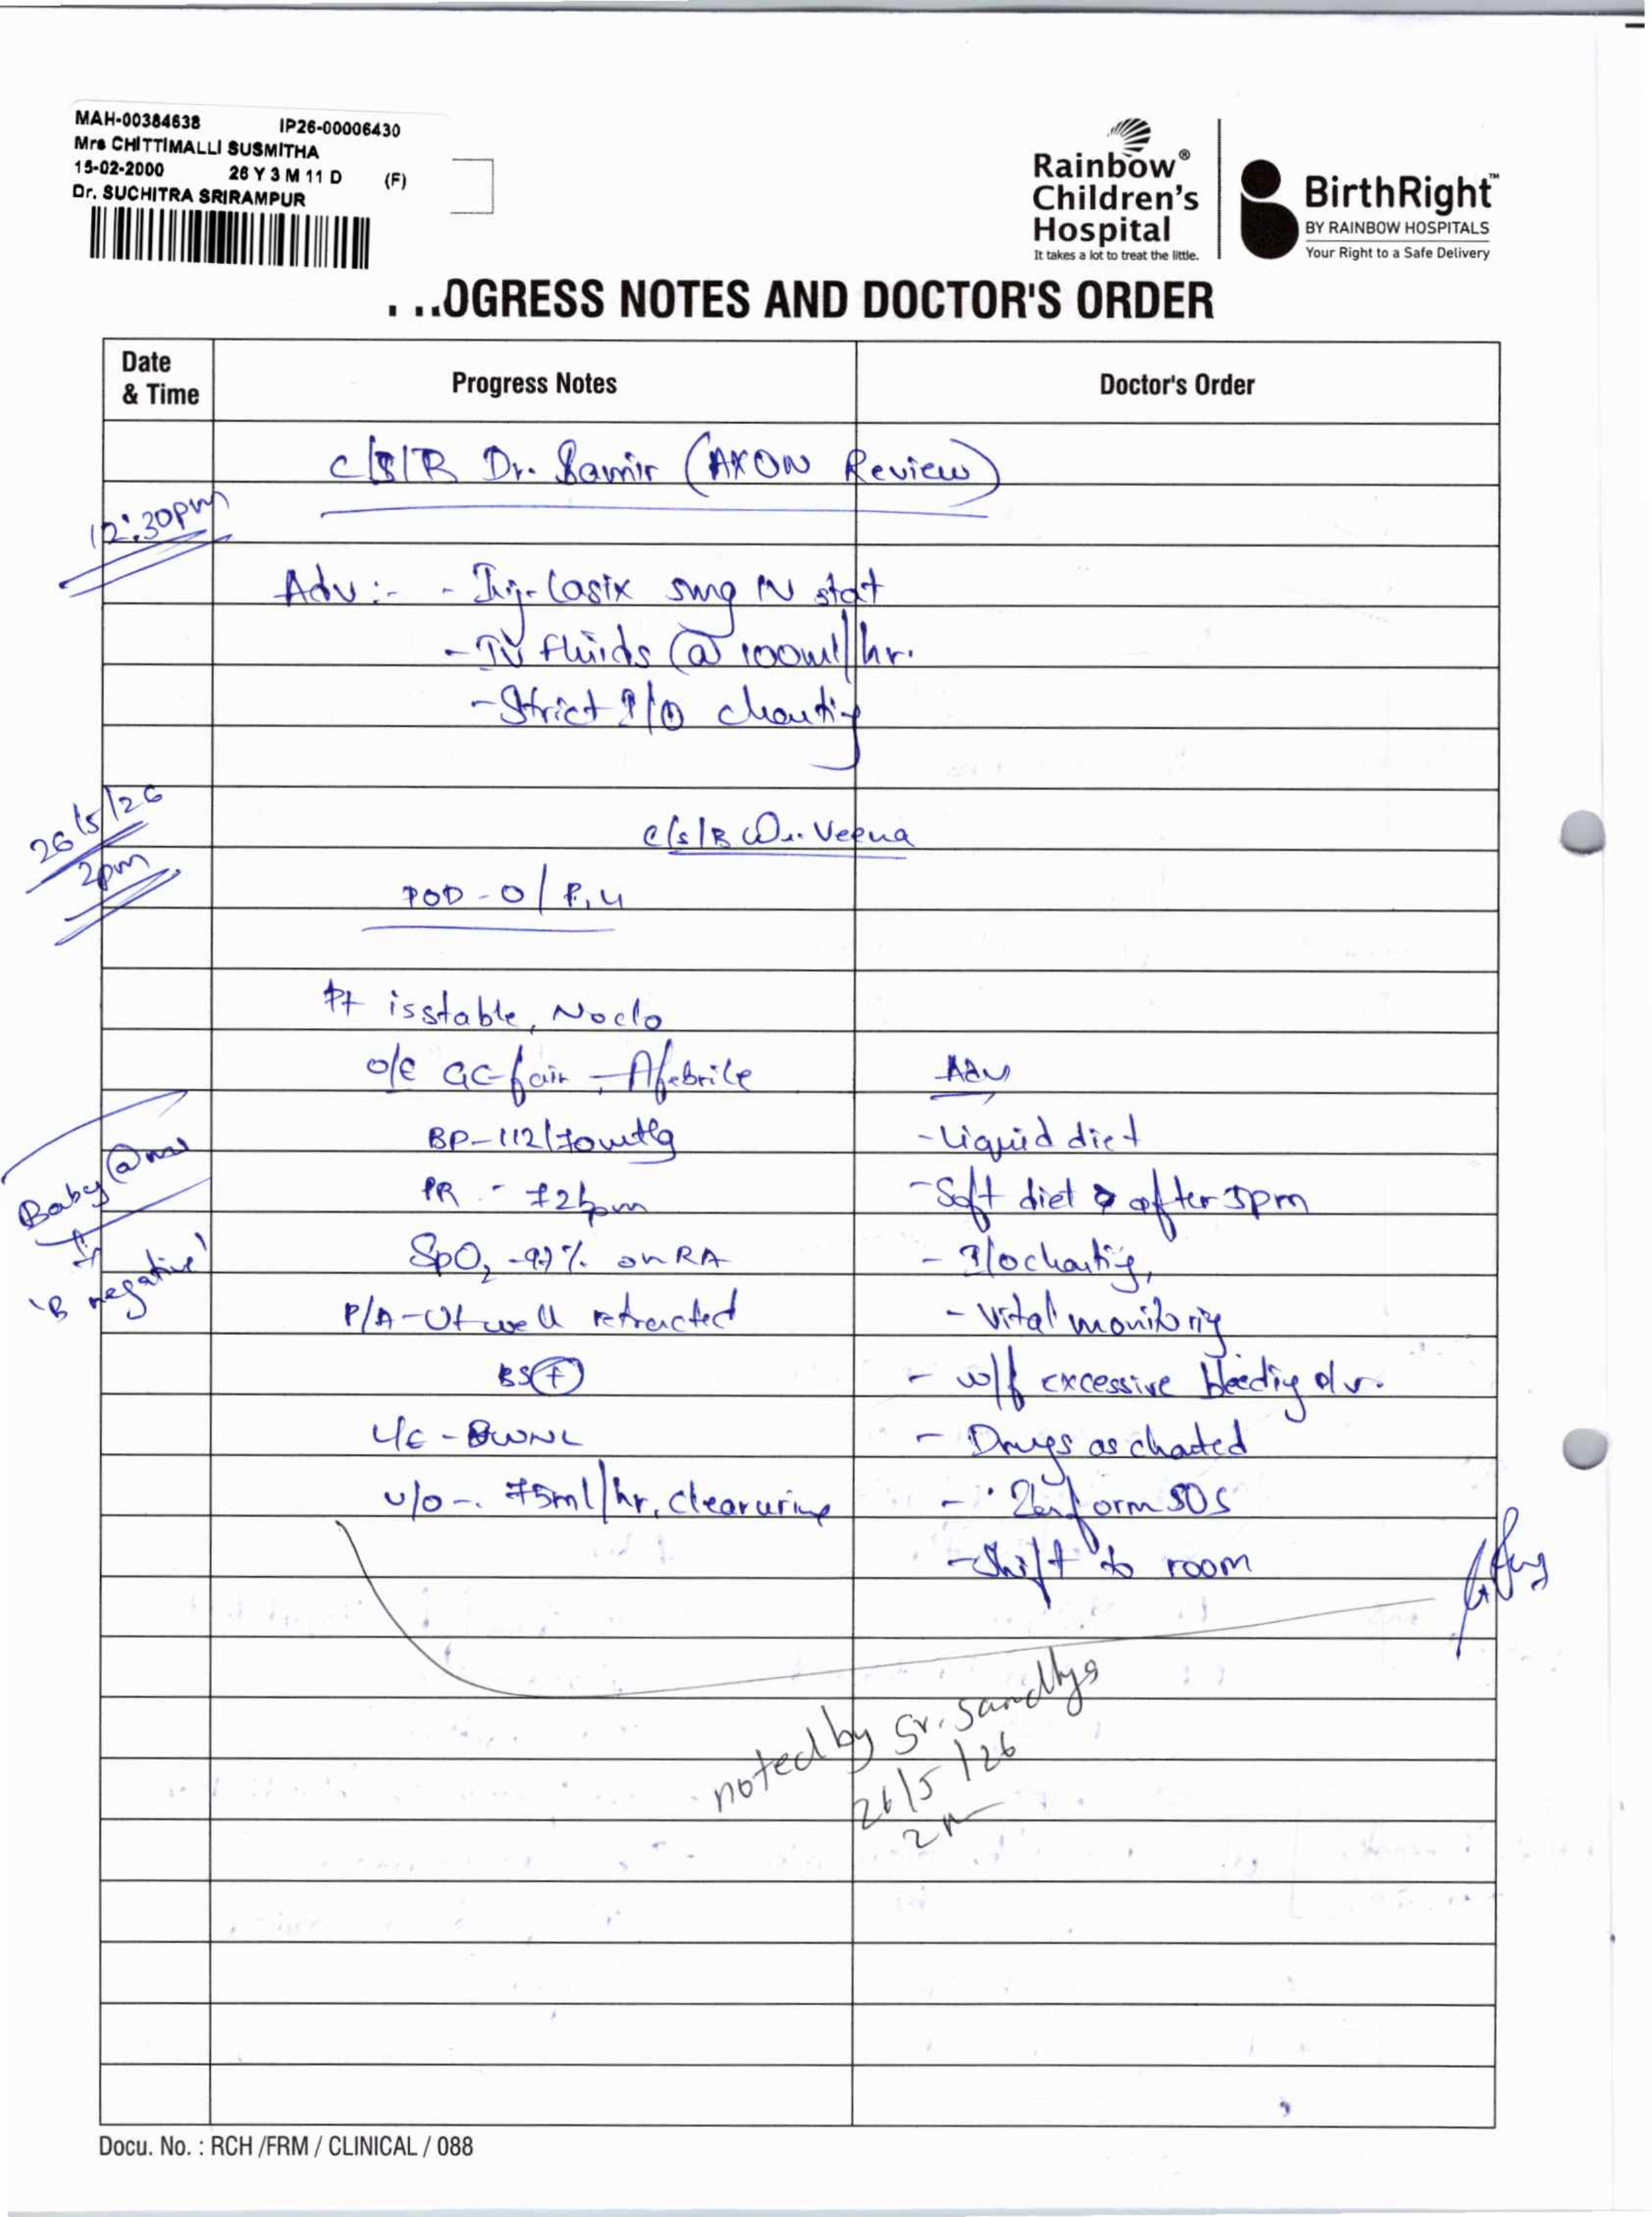 MAH-00384638 IP26-00006430
Mrs CHITTIMALLI SUSMITHA
15-02-2000 26 Y 3 M 11 D (F)
Dr. SUCHITRA SRIRAMPUR
Rainbow®
Children's
Hospital
It takes a lot to treat the little.
BirthRight™
BY RAINBOW HOSPITALS
Your Right to a Safe Delivery
...OGRESS NOTES AND DOCTOR'S ORDER
Date & Time Progress Notes Doctor's Order
C/S/B Dr. Samir (AXON Review)
12:30pm
Adv:- - Inj. Lasix 5mg IV stat
- IV fluids @ 100ml/hr.
- Strict I/O charting
26/5/26
2pm
C/S/B Dr. Veena
POD-0/P1L1
Pt is stable, No c/o
O/E GC-fair, Afebrile Adv
BP-112/70mmHg - Liquid diet
PR - 72bpm - Soft diet after 5pm
SpO2 - 97% on RA - I/O charting,
P/A - Ut well retracted - Vital monitoring
BS + - w/f excessive bleeding p/v.
L/E - BWNL - Drugs as charted
u/o - 75ml/hr, clear urine - Inform SOS
- Shift to room
Baby @ m
'B negative'
noted by Sr. Sandhya
26/5/26
2
Docu. No. : RCH /FRM / CLINICAL / 088